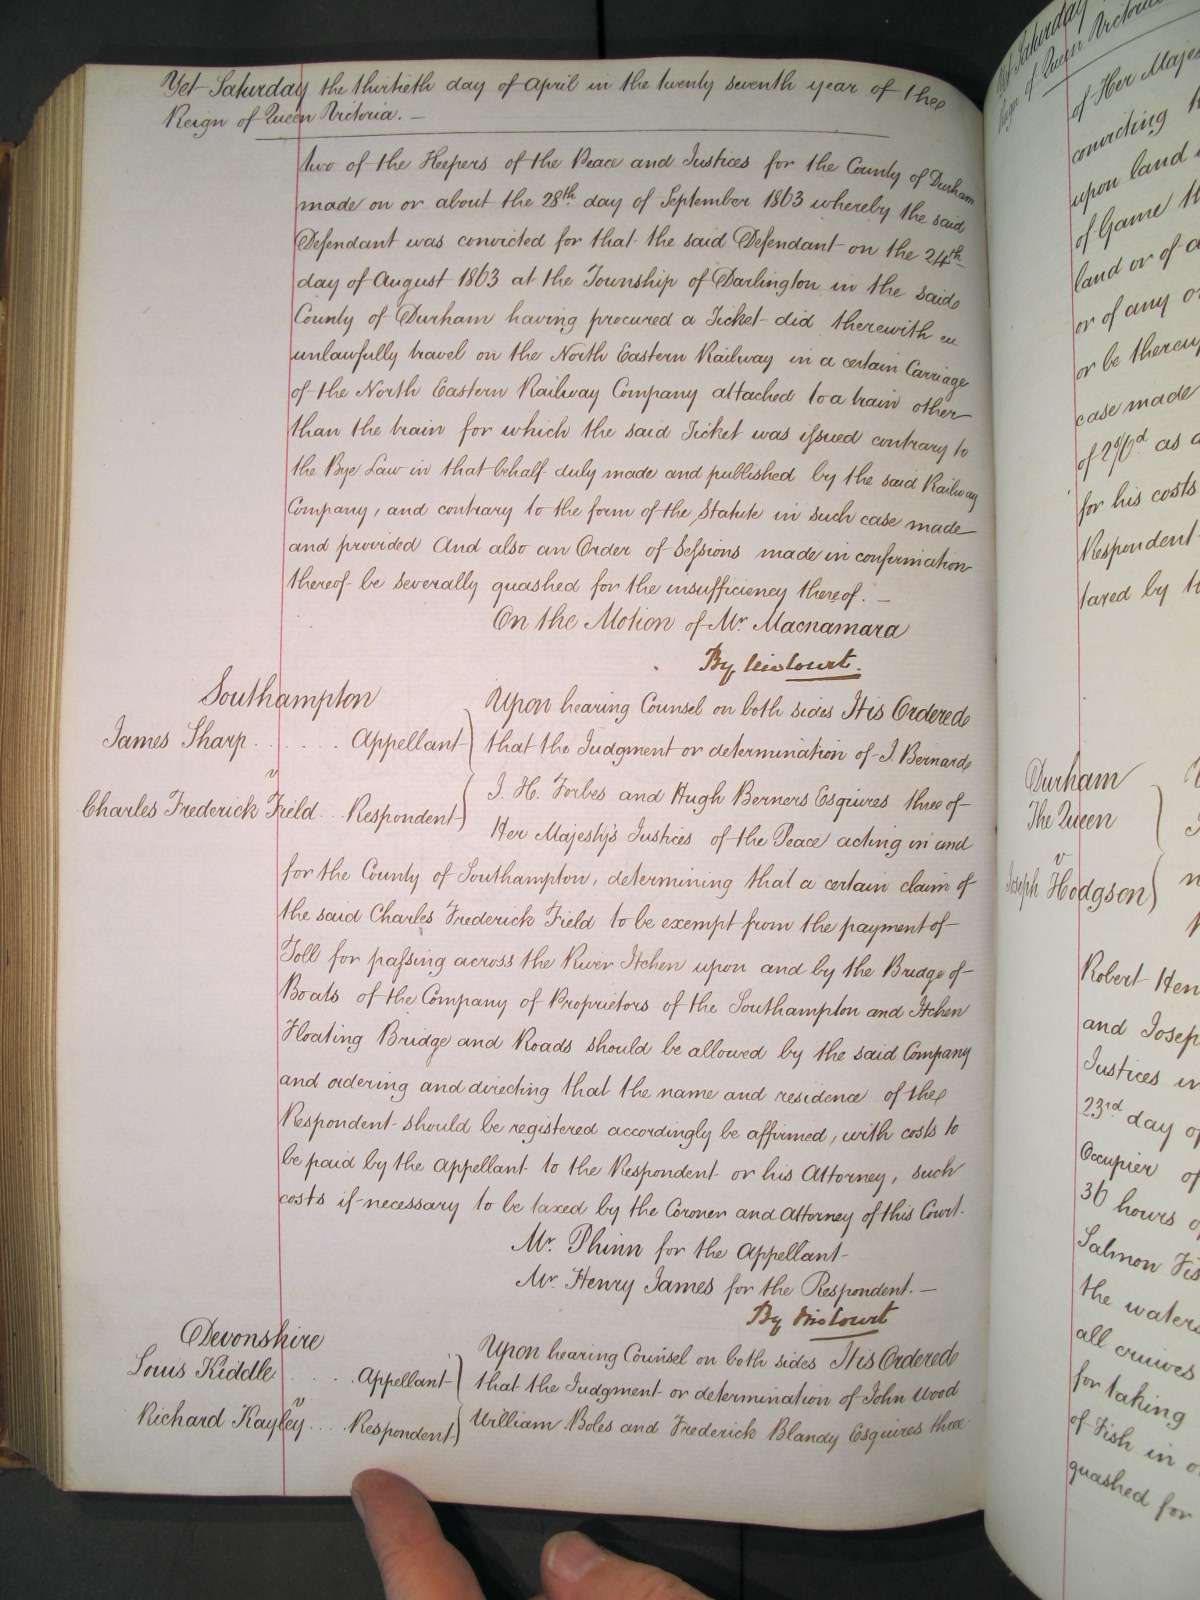 Yet Saturday the thirtieth day of April in the twenty seventh year of the
Reign of Queen Victoria. —
two of the Keepers of the Peace and Justices for the County of Durham
made on or about the 28th day of September 1863 whereby the said
Defendant was convicted for that the said Defendant on the 24th
day of August 1863 at the Township of Darlington in the said
County of Durham having procured a Ticket did therewith
unlawfully travel on the North Eastern Railway in a certain Carriage
of the North Eastern Railway Company attached to a train other
than the train for which the said Ticket was issued contrary to
the Bye Law in that behalf duly made and published by the said Railway
Company, and contrary to the form of the Statute in such case made
and provided And also an Order of Sessions made in confirmation
thereof be severally quashed for the insufficiency thereof. —
On the Motion of Mr. Macnamara
By the Court.
Southampton
James Sharp . . . . . . Appellant
v
Charles Frederick Field . . . Respondent
Upon hearing Counsel on both sides It is Ordered
that the Judgment or determination of J. Bernard
J. H. Forbes and Hugh Berners Esquires three of
Her Majesty's Justices of the Peace acting in and
for the County of Southampton, determining that a certain claim of
the said Charles Frederick Field to be exempt from the payment of
Toll for passing across the River Itchen upon and by the Bridge of
Boats of the Company of Proprietors of the Southampton and Itchen
Floating Bridge and Roads should be allowed by the said Company
and ordering and directing that the name and residence of the
Respondent should be registered accordingly be affirmed, with costs to
be paid by the Appellant to the Respondent or his Attorney, such
costs if necessary to be taxed by the Coroner and Attorney of this Court.
Mr. Phinn for the Appellant
Mr. Henry James for the Respondent. —
By the Court
Devonshire
Louis Kiddle . . . . . Appellant
v
Richard Kayley . . . . Respondent
Upon hearing Counsel on both sides It is Ordered
that the Judgment or determination of John Wood
William Boles and Frederick Blandy Esquires three
Yet Saturday
Reign of Queen Victoria
of Her Majes
convicting
upon land
of Game th
land or of a
or of any o
or be thereup
case made
of 2s/6d as a
for his costs
Respondent
taxed by th
Durham
The Queen
v
Joseph Hodgson
Robert Hen
and Josep
Justices in
23rd day of
Occupier of
36 hours
Salmon Fis
the waters
all cruives
for taking
of Fish in
quashed for